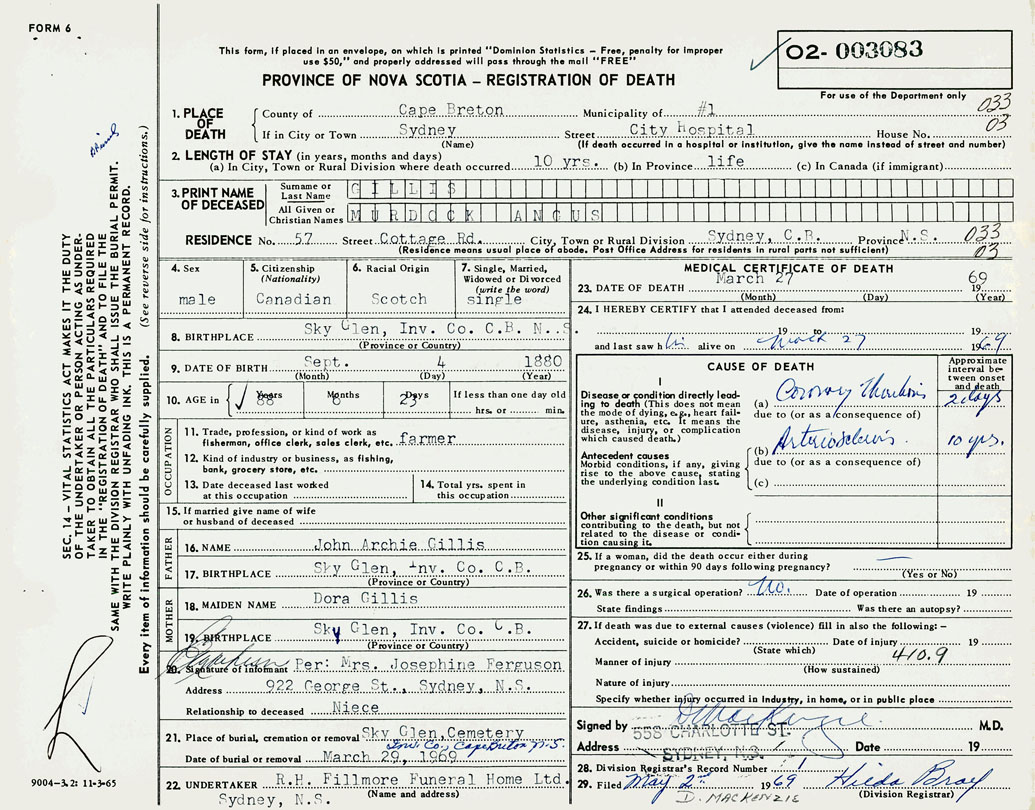 FORM 6
This form, if placed in an envelope, on which is printed "Dominion Statistics – Free, penalty for improper
use $50," and properly addressed will pass through the mail "FREE"
PROVINCE OF NOVA SCOTIA – REGISTRATION OF DEATH
02- 003083
For use of the Department only
033
03
1. PLACE OF DEATH
County of Cape Breton Municipality of #1
If in City or Town Sydney Street City Hospital House No.
(Name) (If death occurred in a hospital or institution, give the name instead of street and number)
2. LENGTH OF STAY (in years, months and days)
(a) In City, Town or Rural Division where death occurred 10 yrs. (b) In Province life (c) In Canada (if immigrant)
3. PRINT NAME OF DECEASED
Surname or Last Name GILLIS
All Given or Christian Names MURDOCK ANGUS
RESIDENCE No. 57 Street Cottage Rd. City, Town or Rural Division Sydney, C.B. Province N.S.
(Residence means usual place of abode. Post Office Address for residents in rural parts not sufficient)
033
03
4. Sex
male
5. Citizenship
(Nationality)
Canadian
6. Racial Origin
Scotch
7. Single, Married,
Widowed or Divorced
(write the word)
single
8. BIRTHPLACE Sky Glen, Inv. Co. C.B. N..S.
(Province or Country)
9. DATE OF BIRTH Sept. 4 1880
(Month) (Day) (Year)
10. AGE in Years Months Days If less than one day old
88 6 23 hrs. or min.
OCCUPATION
11. Trade, profession, or kind of work as
fisherman, office clerk, sales clerk, etc. farmer
12. Kind of industry or business, as fishing,
bank, grocery store, etc.
13. Date deceased last worked
at this occupation
14. Total yrs. spent in
this occupation
15. If married give name of wife
or husband of deceased
FATHER
16. NAME John Archie Gillis
17. BIRTHPLACE Sky Glen, Inv. Co. C.B.
(Province or Country)
MOTHER
18. MAIDEN NAME Dora Gillis
19. BIRTHPLACE Sky Glen, Inv. Co. C.B.
(Province or Country)
20. Signature of informant Per: Mrs. Josephine Ferguson
Address 922 George St., Sydney, N.S.
Relationship to deceased Niece
21. Place of burial, cremation or removal Sky Glen, Cemetery
Inv. Co., Cape Breton N.S.
Date of burial or removal March 29, 1969
22. UNDERTAKER R.H. Fillmore Funeral Home Ltd.
(Name and address)
Sydney, N.S.
MEDICAL CERTIFICATE OF DEATH
23. DATE OF DEATH March 27 1969
(Month) (Day) (Year)
24. I HEREBY CERTIFY that I attended deceased from:
19 to 19
and last saw him alive on March 27 1969
CAUSE OF DEATH
Approximate
interval be-
tween onset
and death
I
Disease or condition directly lead-
ing to death (This does not mean
the mode of dying, e.g., heart fail-
ure, asthenia, etc. It means the
disease, injury, or complication
which caused death.)
(a) Coronary Thrombosis 2 days
due to (or as a consequence of)
Antecedent causes
Morbid conditions, if any, giving
rise to the above cause, stating
the underlying condition last.
(b) Arteriosclerosis. 10 yrs.
due to (or as a consequence of)
(c)
II
Other significant conditions
contributing to the death, but not
related to the disease or condi-
tion causing it.
25. If a woman, did the death occur either during
pregnancy or within 90 days following pregnancy? —
(Yes or No)
26. Was there a surgical operation? No. Date of operation 19
State findings Was there an autopsy?
27. If death was due to external causes (violence) fill in also the following:–
Accident, suicide or homicide? Date of injury 19
(State which)
410.9
Manner of injury
(How sustained)
Nature of injury
Specify whether injury occurred in Industry, in home, or in public place
Signed by D. MacKenzie M.D.
558 CHARLOTTE ST.
Address SYDNEY, N.S. Date 19
28. Division Registrar's Record Number
29. Filed May 2nd 1969 Hilda Bray
(Division Registrar)
D. MACKENZIE
SEC. 14 – VITAL STATISTICS ACT MAKES IT THE DUTY
OF THE UNDERTAKER OR PERSON ACTING AS UNDER-
TAKER TO OBTAIN ALL THE PARTICULARS REQUIRED
IN THE "REGISTRATION OF DEATH" AND TO FILE THE
SAME WITH THE DIVISION REGISTRAR WHO SHALL ISSUE THE BURIAL PERMIT.
WRITE PLAINLY WITH UNFADING INK. THIS IS A PERMANENT RECORD.
Every item of information should be carefully supplied. (See reverse side for instructions.)
9004–3.2: 11-3-65